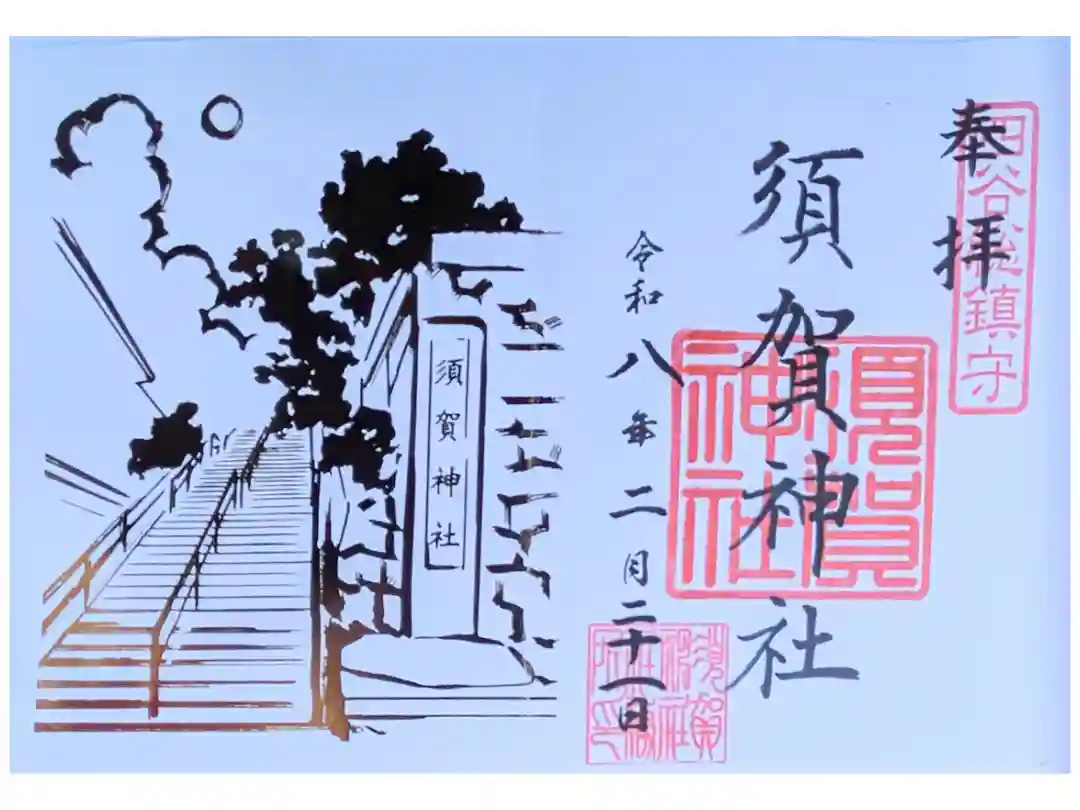 奉拝
四谷総鎮守
須賀神社
須賀神社
令和八年二月二十一日
須賀神社